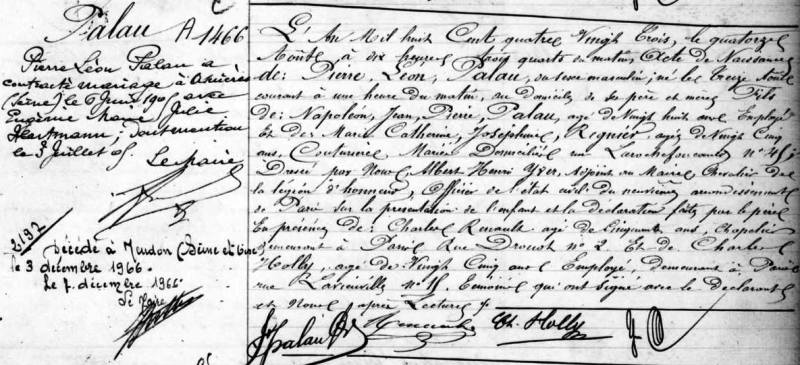 Palau
A 1466
Pierre Léon Palau a
contracté mariage à Asnières
(Seine) le 6 juin 1905 avec
Eugénie Marie Julie
Hartmann; dont mention
le 3 Juillet 05. Le Maire
2192
Décédé à Meudon (Seine et Oise)
le 3 décembre 1966.
Le 7 décembre 1966
Le Maire
L'An Mil huit Cent quatre Vingt Trois, le quatorze
Aoûte à dix heures trois quarts du matin, Acte de Naissance
de: Pierre, Léon, Palau, du sexe masculin, né le treize Aoûte
courant à une heure du matin, au domicile de ses père et mère; Fils
de: Napoléon, Jean, Pierre, Palau, agé de Vingt huit ans Employé
Et de: Marie Catherine, Joséphine, Régnier, agée de Vingt Cinq
ans, Couturière Mariés Domiciliés rue Larochefoucauld n° 45;
Dressé par Nous Albert Henri Adjoint au Maire Chevalier de
la légion d'honneur, Officier de l'état civil du neuvième arrondissement
de Paris sur la présentation de l'enfant et la déclaration faites par le père
En présence de: Charles Renault agé de Cinquante ans, Chapelier
demeurant à Paris Rue Drouot n° 2. Et de Charles
Holly, agé de Vingt Cinq ans Employé, demeurant à Paris
rue n° 15 Témoins qui ont signé avec le déclarant
et Nous après Lecture
Palau
Ch. Holly